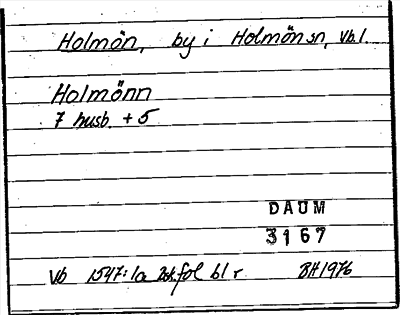 Holmön, by i Holmön sn, Vb.l.
Holmönn
7 husb. + 5
DAUM
3167
Vb 1547:1a fol bl r. BH 1976